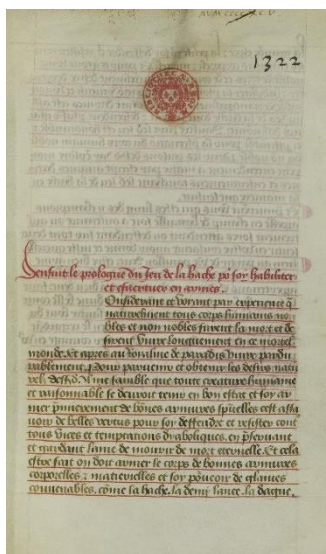 1322
Sensuit le prologue du jeu de la hache po soy habiliter
et exerciter en armes.
Considerant et voyant par experience q
naturelment tous corps humains no
bles et non nobles fuient la mort et de
sirent vivre longuement en ce mortel
monde. Et apres au royalme de paradis vivre pardu
rablement. Pour parvenir et obtenir les desirs natu
relz dessusd. Il me samble que toute creature humaine
et raisonnable se devroit tenir en bon estat et soy ar
mer primierement de bones armures spuelles cest assa
voir de belles vertus pour soy deffendre et resister contre
tous vices et temptations dyaboliques. en pservant
et gardant lame de mourir de mort eternelle. Et cela
estre fait on doit armer le corps de bonnes armures
corporelles & materielles et soy pourveoir de glaives
convenables. come la hache. la demy lance. la dague.